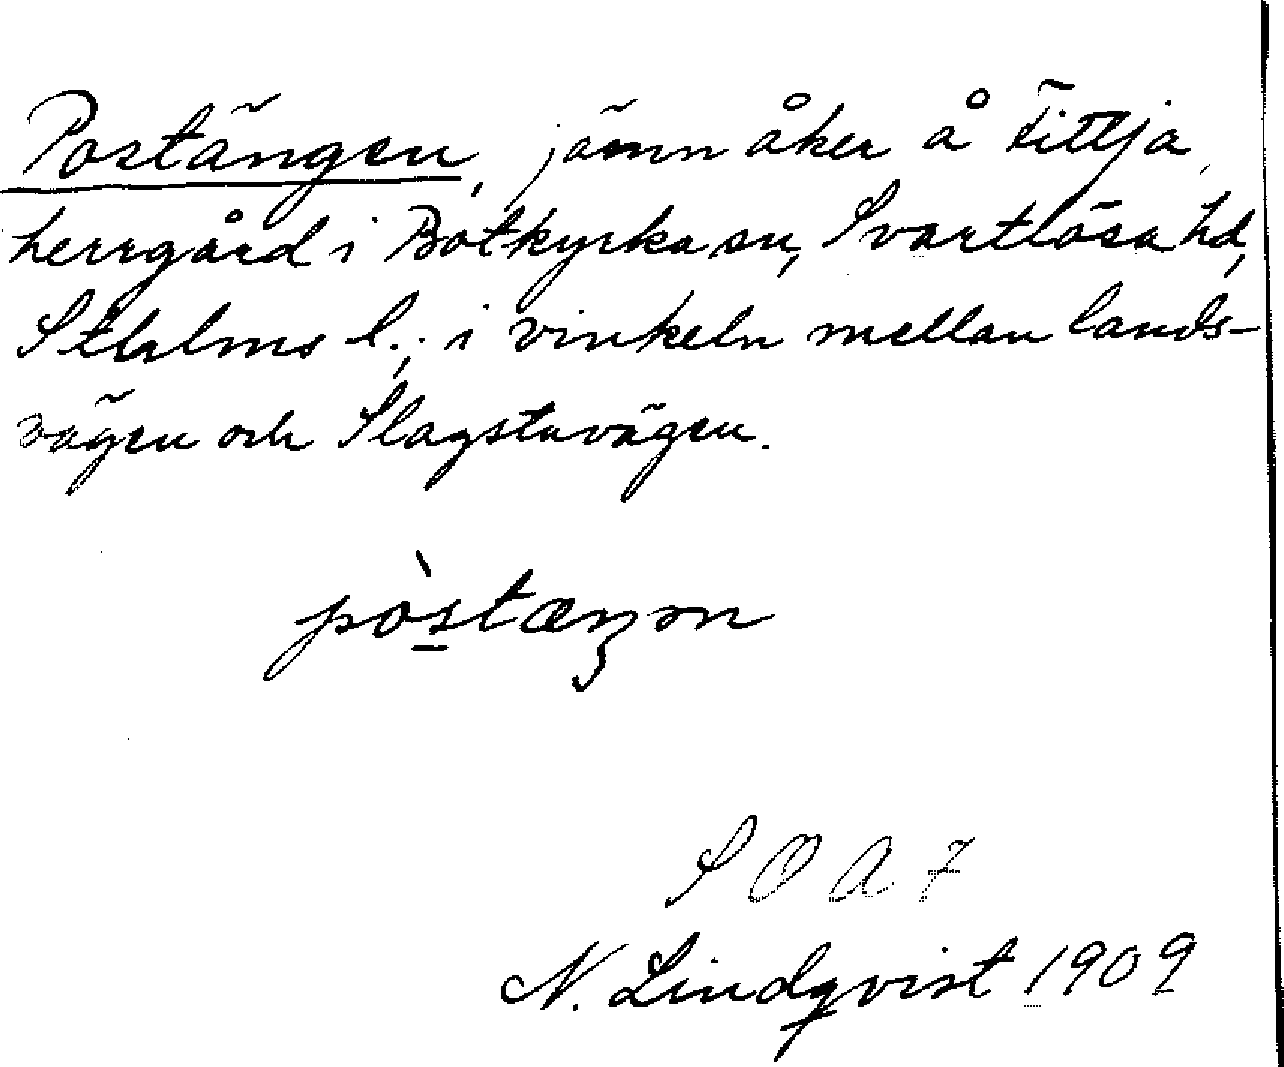 Postängen, jämn åker å Fittja
herrgård i Botkyrka sn, Svartlösa hd,
Sthlms l.; i vinkeln mellan lands-
vägen och Slagstavägen.
pòstæŋən
SOA 7
N. Lindqvist 1909